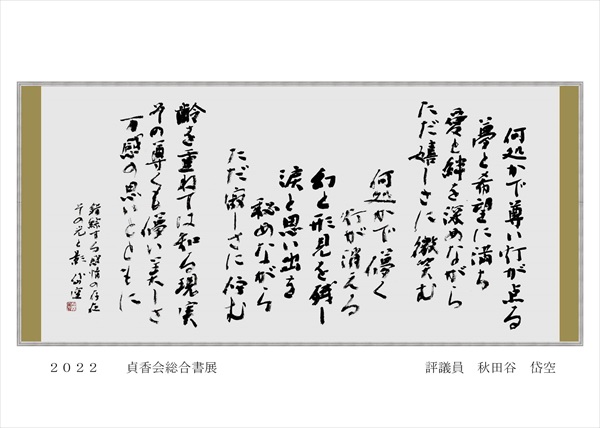 何処かで尊い灯が点る
夢と希望に満ち
愛と絆を深めながら
ただ嬉しさに微笑む
何処かで儚く
灯が消える
幻と形見を残し
涙と思い出を
秘めながら
ただ寂しさに佇む
齢を重ねては知る現実
その尊くも儚い美しさ
万感の思いとともに
錯綜する感情の存在
その光と影 岱空
2022 貞香会総合書展
評議員 秋田谷 岱空